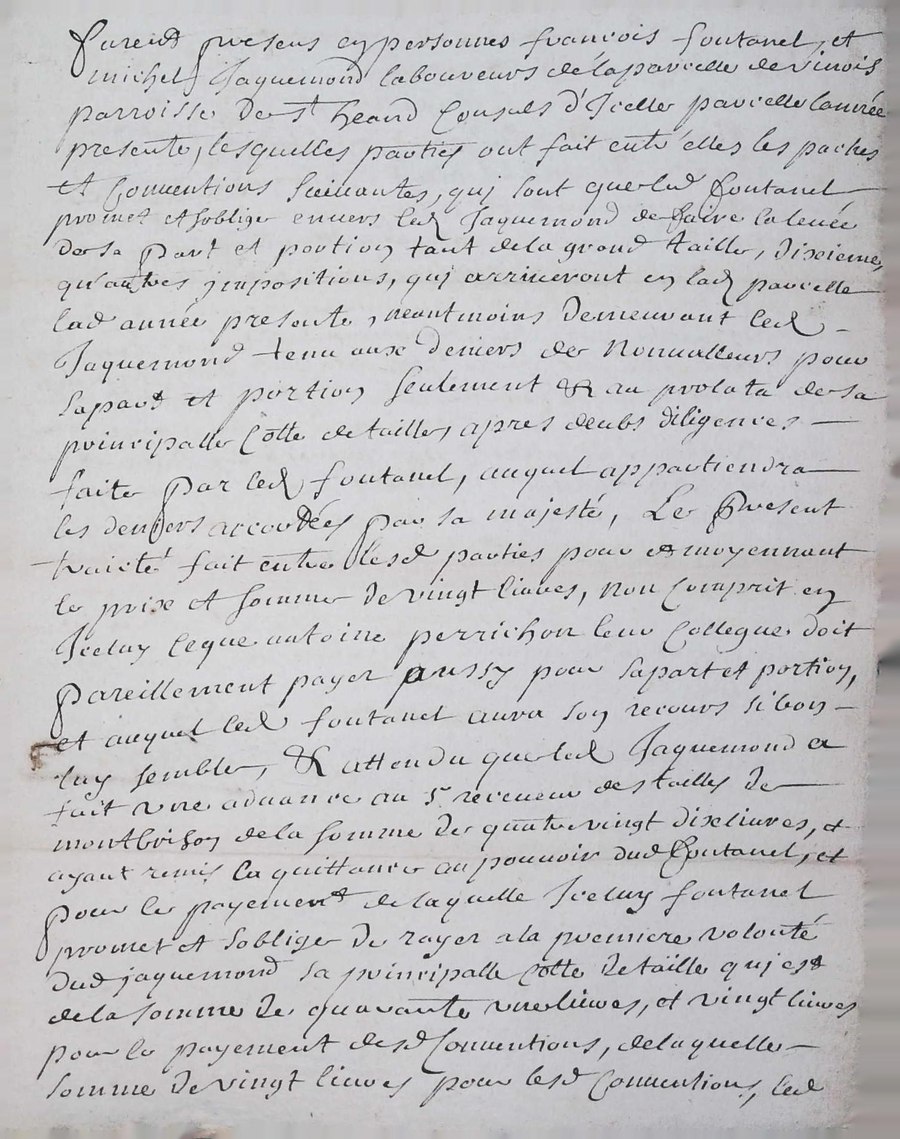 furend presens en personnes françois fontanel, et
michel Jaquemond laboureurs de la parcelle de vinois
parroisse de St heand Consuls d'Icelle parcelle lannée
presente, lesquelles parties ont fait entr'elles les paches
et Conventions suivantes, qui sont que led fontanel
promet et soblige envers led Jaquemond de faire la levée
de sa part et portion tant de la grand taille, dixieme,
qu'autres impositions, qui arriveront en lad parcelle
lad année presente, neantmoins demeurant led
Jaquemond tenu aux deniers de Nonvalleurs pour
sa part et portion seulement & au prolata de sa
principalle Cotte de tailles, apres deubs diligences
faite par led fontanel, auquel appartiendra
les deniers accordées par sa majesté, Le present
traité fait entre lesd parties pour et moyennant
le prix et somme de vingt livres, non Comprit en
Iceluy ce que antoine perrichon leur Collegue doit
pareillement payer aussy pour sa part et portion,
et auquel led fontanel aura son recours si bon
luy semble, & attendu que led Jaquemond a
fait une advance au Sr receveur des tailles de
montbrison de la somme de quatrevingt dix livres, et
ayant remis la quittance au pouvoir dud fontanel, et
pour le payement de laquelle Iceluy fontanel
promet et soblige de rayer a la premiere volonté
dud jaquemond sa principalle Cotte de taille qui est
de la somme de quarante une livres, et vingt livres
pour le payement desd Conventions, de laquelle
somme de vingt livres pour lesd Conventions, led